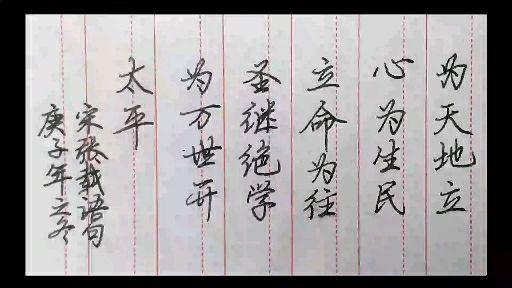 为天地立
心为生民
立命为往
圣继绝学
为万世开
太平
宋张载语句
庚子年立冬